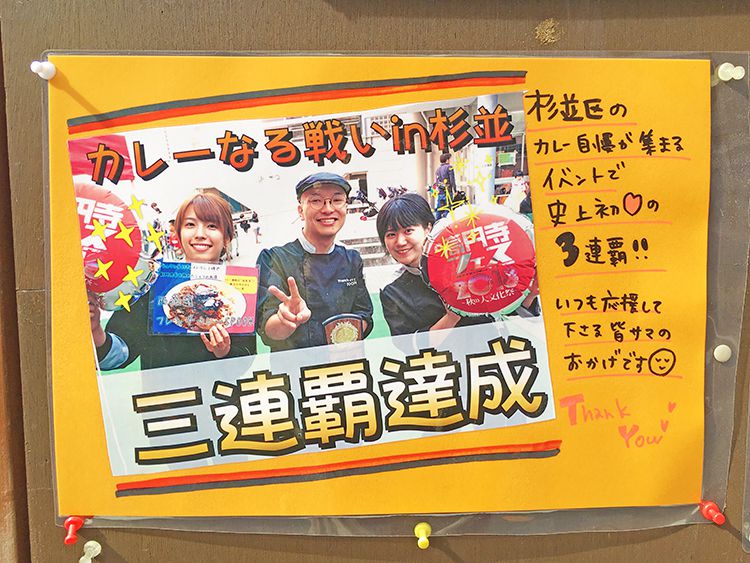 カレーなる戦いin杉並
三連覇達成
杉並区の
カレー自慢が集まる
イベントで
史上初♡の
3連覇!!
いつも応援して
下さる皆サマの
おかげです
Thank
You
2018